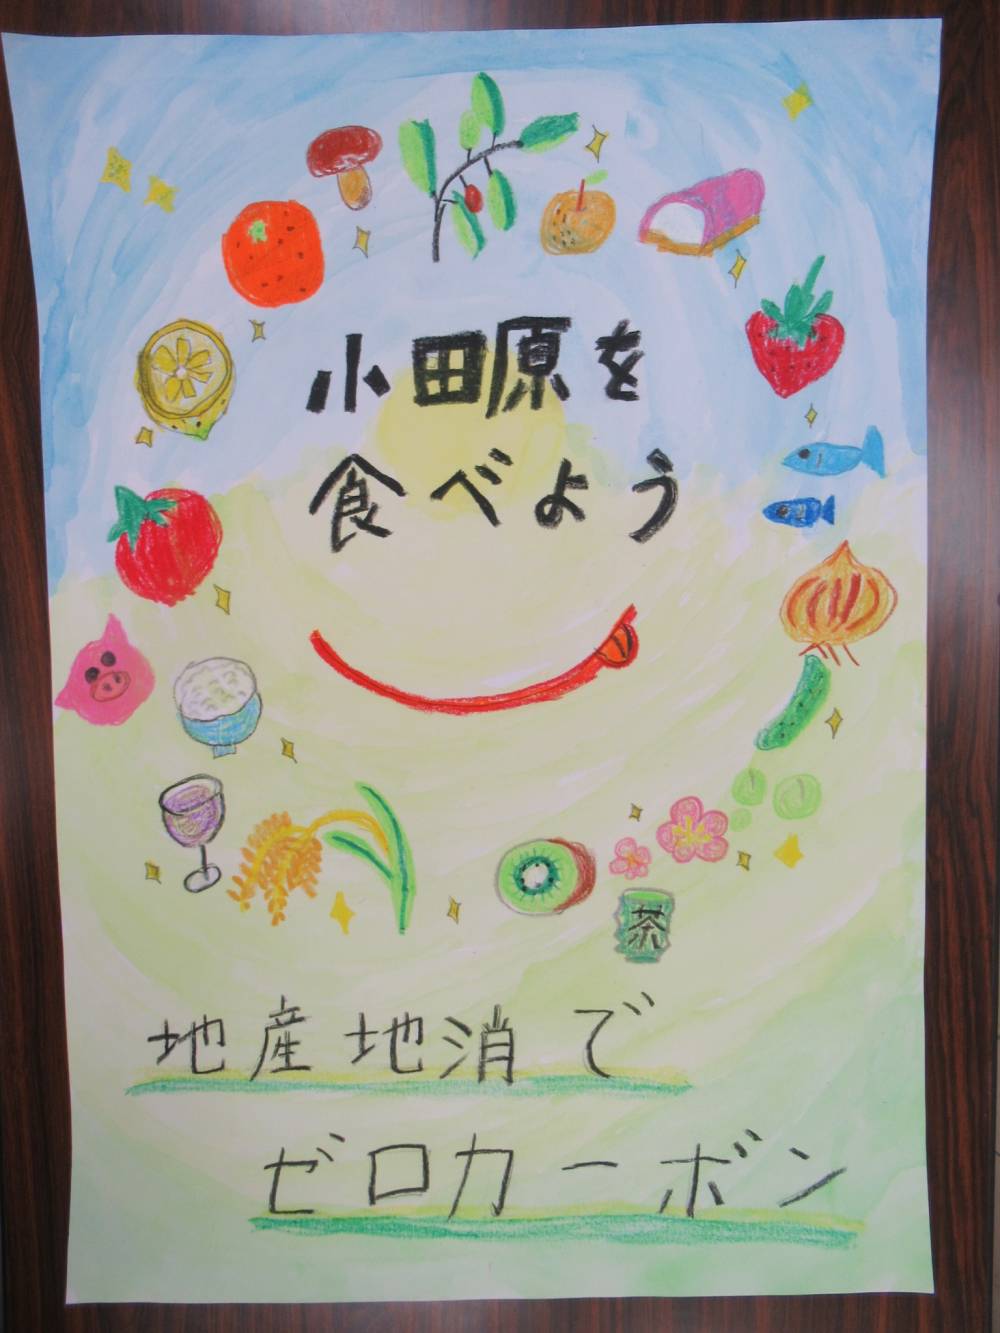 小田原を
食べよう
茶
地産地消で
ゼロカーボン